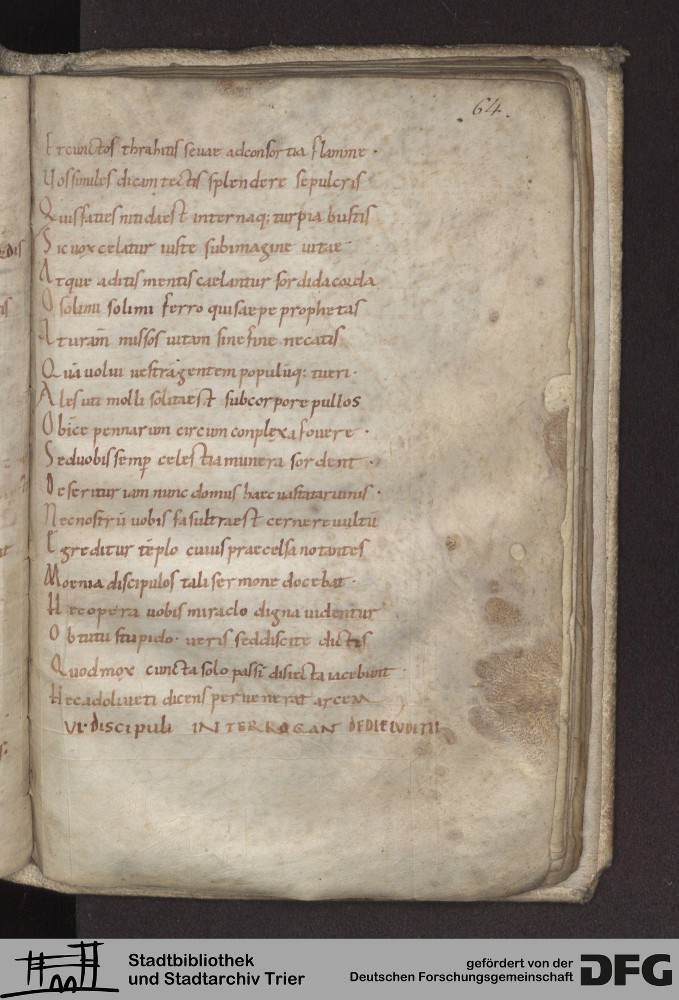 64.
Et cunctos thrahitis sevae ad consortia flamme.
Vos similes dicam tectis splendere sepulcris
Quis facies nitida est internaq; turpia bustis
Sic vox celatur iuste sub imagine vitae
Atque aditis mentis caelantur sordida corda
O solimi solimi ferro qui saepe prophetas
Ad turam missos vitam sine fine necatis
Quā volui vestrā gentem populūq; tueri.
Ales uti molli solita est sub corpore pullos
Obice pennarum circum conplexa fovere.
Sed vobis semp celestia munera sordent.
Deseritur iam nunc domus haec vastata ruinis.
Nec nostrū vobis fas ultra est cernere vultū
Egreditur tēplo cuius praecelsa notantes
Moenia discipulos tali sermone docebat.
Hec opera vobis miraclo digna videntur
Obtutu stupido. veris sed discite dictis
Quod mox cuncta solo passī disiecta iacebunt.
Hec ad oliveti dicens pervenerat arcem
VI. discipuli INTERROGAN DE DIE IUDITII
Stadtbibliothek
und Stadtarchiv Trier
gefördert von der
Deutschen Forschungsgemeinschaft
DFG